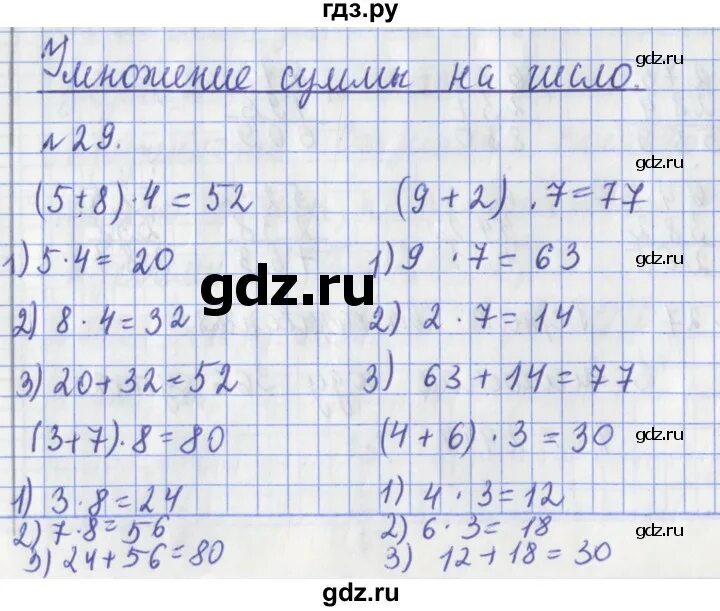 гдз.ру
gdz.ru
Умножение суммы на число.
№29.
gdz.ru
(5+8)·4=52 (9+2).7=77
1) 5·4=20 1) 9·7=63 gdz.ru
gdz.ru
2) 8·4=32 2) 2·7=14
3) 20+32=52 3) 63+14=77
(3+7)·8=80 (4+6)·3=30 gdz.ru
1) 3·8=24 1) 4·3=12
2) 7·8=56 2) 6·3=18
3) 24+56=80 3) 12+18=30
gdz.ru